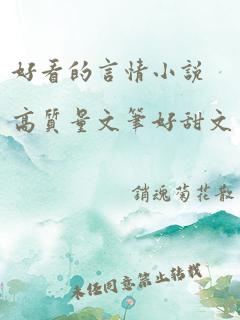 好看的言情小說
高質量文筆好甜文
銷魂菊花散
未經同意禁止轉載